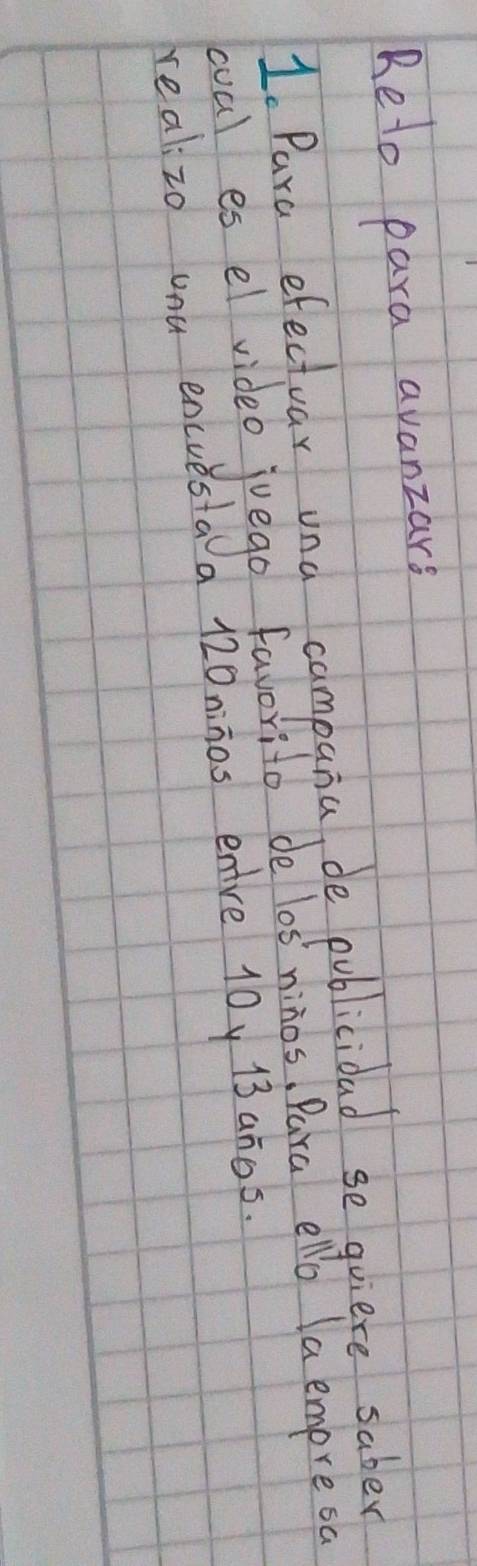 Reto para avanzar:
1. Para efectuar una campaña de publicidad se quiere saber
cual es el video juego favorito de los niños. Para ello la empresa
realizo una encuesta a 120 niños entre 10 y 13 años.